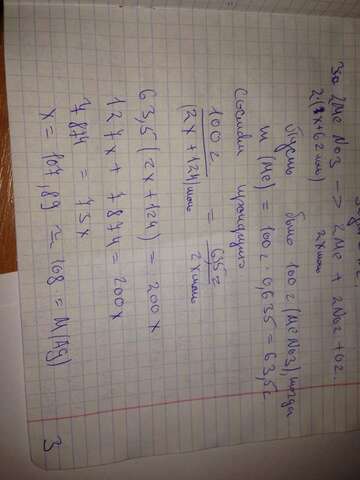 2MeNO3 -> 2Me + 2NO2 + O2.
2(x+62 моль) 2x моль
Пусть было 100 г (MeNO3), тогда
m (Me) = 100г · 0,635 = 63,5г
Составим пропорцию
100 г / (2x + 124) моль = 63,5 г / 2x моль
63,5 (2x + 124) = 200x
127x + 7874 = 200x
7874 = 73x
x = 107,89 ≈ 108 = M(Ag)
3